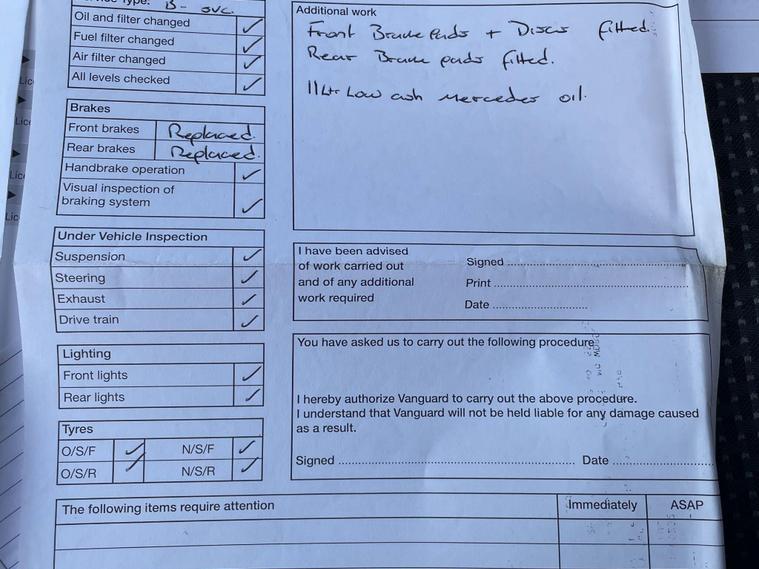 Type: B - svc.
Oil and filter changed ✓
Fuel filter changed ✓
Air filter changed ✓
All levels checked ✓
Brakes
Front brakes Replaced.
Rear brakes Replaced.
Handbrake operation ✓
Visual inspection of
braking system ✓
Under Vehicle Inspection
Suspension ✓
Steering ✓
Exhaust ✓
Drive train ✓
Lighting
Front lights ✓
Rear lights ✓
Tyres
O/S/F ✓ N/S/F ✓
O/S/R ✓ N/S/R ✓
Additional work
Front Brake Pads + Discs fitted.
Rear Brake pads fitted.
11 Ltr Low ash Mercedes oil.
I have been advised
of work carried out
and of any additional
work required
Signed
Print
Date
You have asked us to carry out the following procedure
I hereby authorize Vanguard to carry out the above procedure.
I understand that Vanguard will not be held liable for any damage caused
as a result.
Signed Date
The following items require attention Immediately ASAP